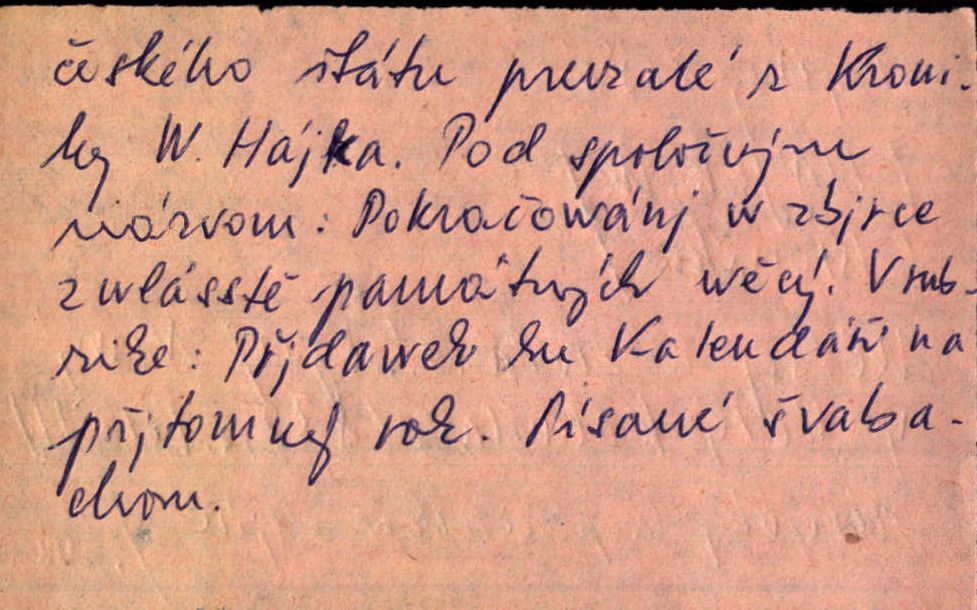 českého štátu prevzaté z Kroni-
ky W. Hájka. Pod spoločným
názvom: Pokračowánj w zbjrce
zwlásstě památných wěcý. V rub-
rike: Přjdawek ku Kalendáři na
přjtomný rok. Písané švaba-
chom.